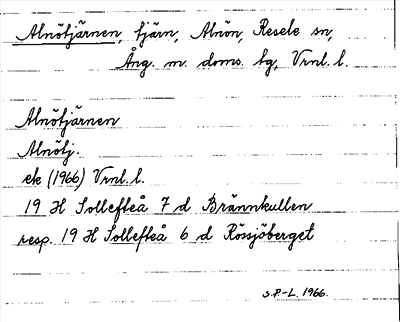 Alnötjärnen, tjärn, Alnön, Resele sn,
Ång. m. doms. tg, Vrnl. l.
Alnötjärnen
Alnötj.
ek (1966) Vrnl. l.
19 H Sollefteå 7 d Brännkullen
resp. 19 H Sollefteå 6 d Rössjöberget
S.P.-L. 1966.